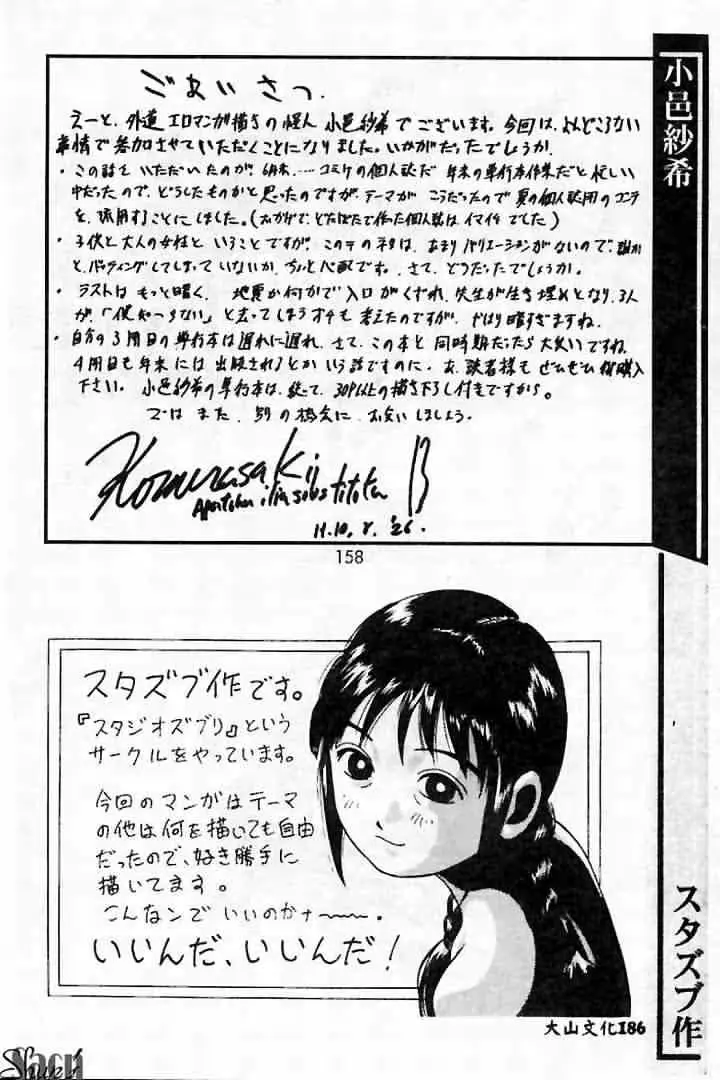 小邑紗希
ごあいさつ.
えーと、外道エロマンガ描きの怪人 小邑紗希でございます。今回は、よんどころない
事情で参加させていただくことになりました。いかがだったでしょうか.
・この話をいただいたのが、6月末....コミケの個人誌だ 年末の単行本作業だと忙しい
中だったので、どうしたものかと思ったのですが、テーマが こうだったので 夏の個人誌用のコンテ
を、流用することにしました。(おかげで、どたばたで作った個人誌は、イマイチでした)
・子供と大人の女性と、いうことですが、このテのネタは、あまりバリエーションがないので、誰か
と、バッティングしてしまっていないか、ちょっと心配です。さて、どうだったでしょうか。
・ラストは もっと暗く、 地震か何かで入口がくずれ、先生が生き埋めとなり、3人
が、「仕方ない」と去ってしまうオチも 考えたのですが、やはり暗すぎますね.
・自分の3冊目の単行本は遅れに遅れ、さて、この本と同時期だったら大笑いですね.
4冊目も年末には出版されるとかいう話ですのに、あ、読者様もぜひぜひ御購入
下さい。小邑紗希の単行本は、総て、30P以上の描き下ろし付きですから。
では また、別の機会に お会いしましょう.
Komurasaki
H.10. 8. '26.
158
スタズブ作です。
『スタジオズブリ』という
サークルをやっています。
今回のマンガはテーマ
の他は何を描いても自由
だったので、好き勝手に
描いてます。
こんなンで いいのかナ〜〜〜。
いいんだ、いいんだ!
スタズブ作
大山文化186